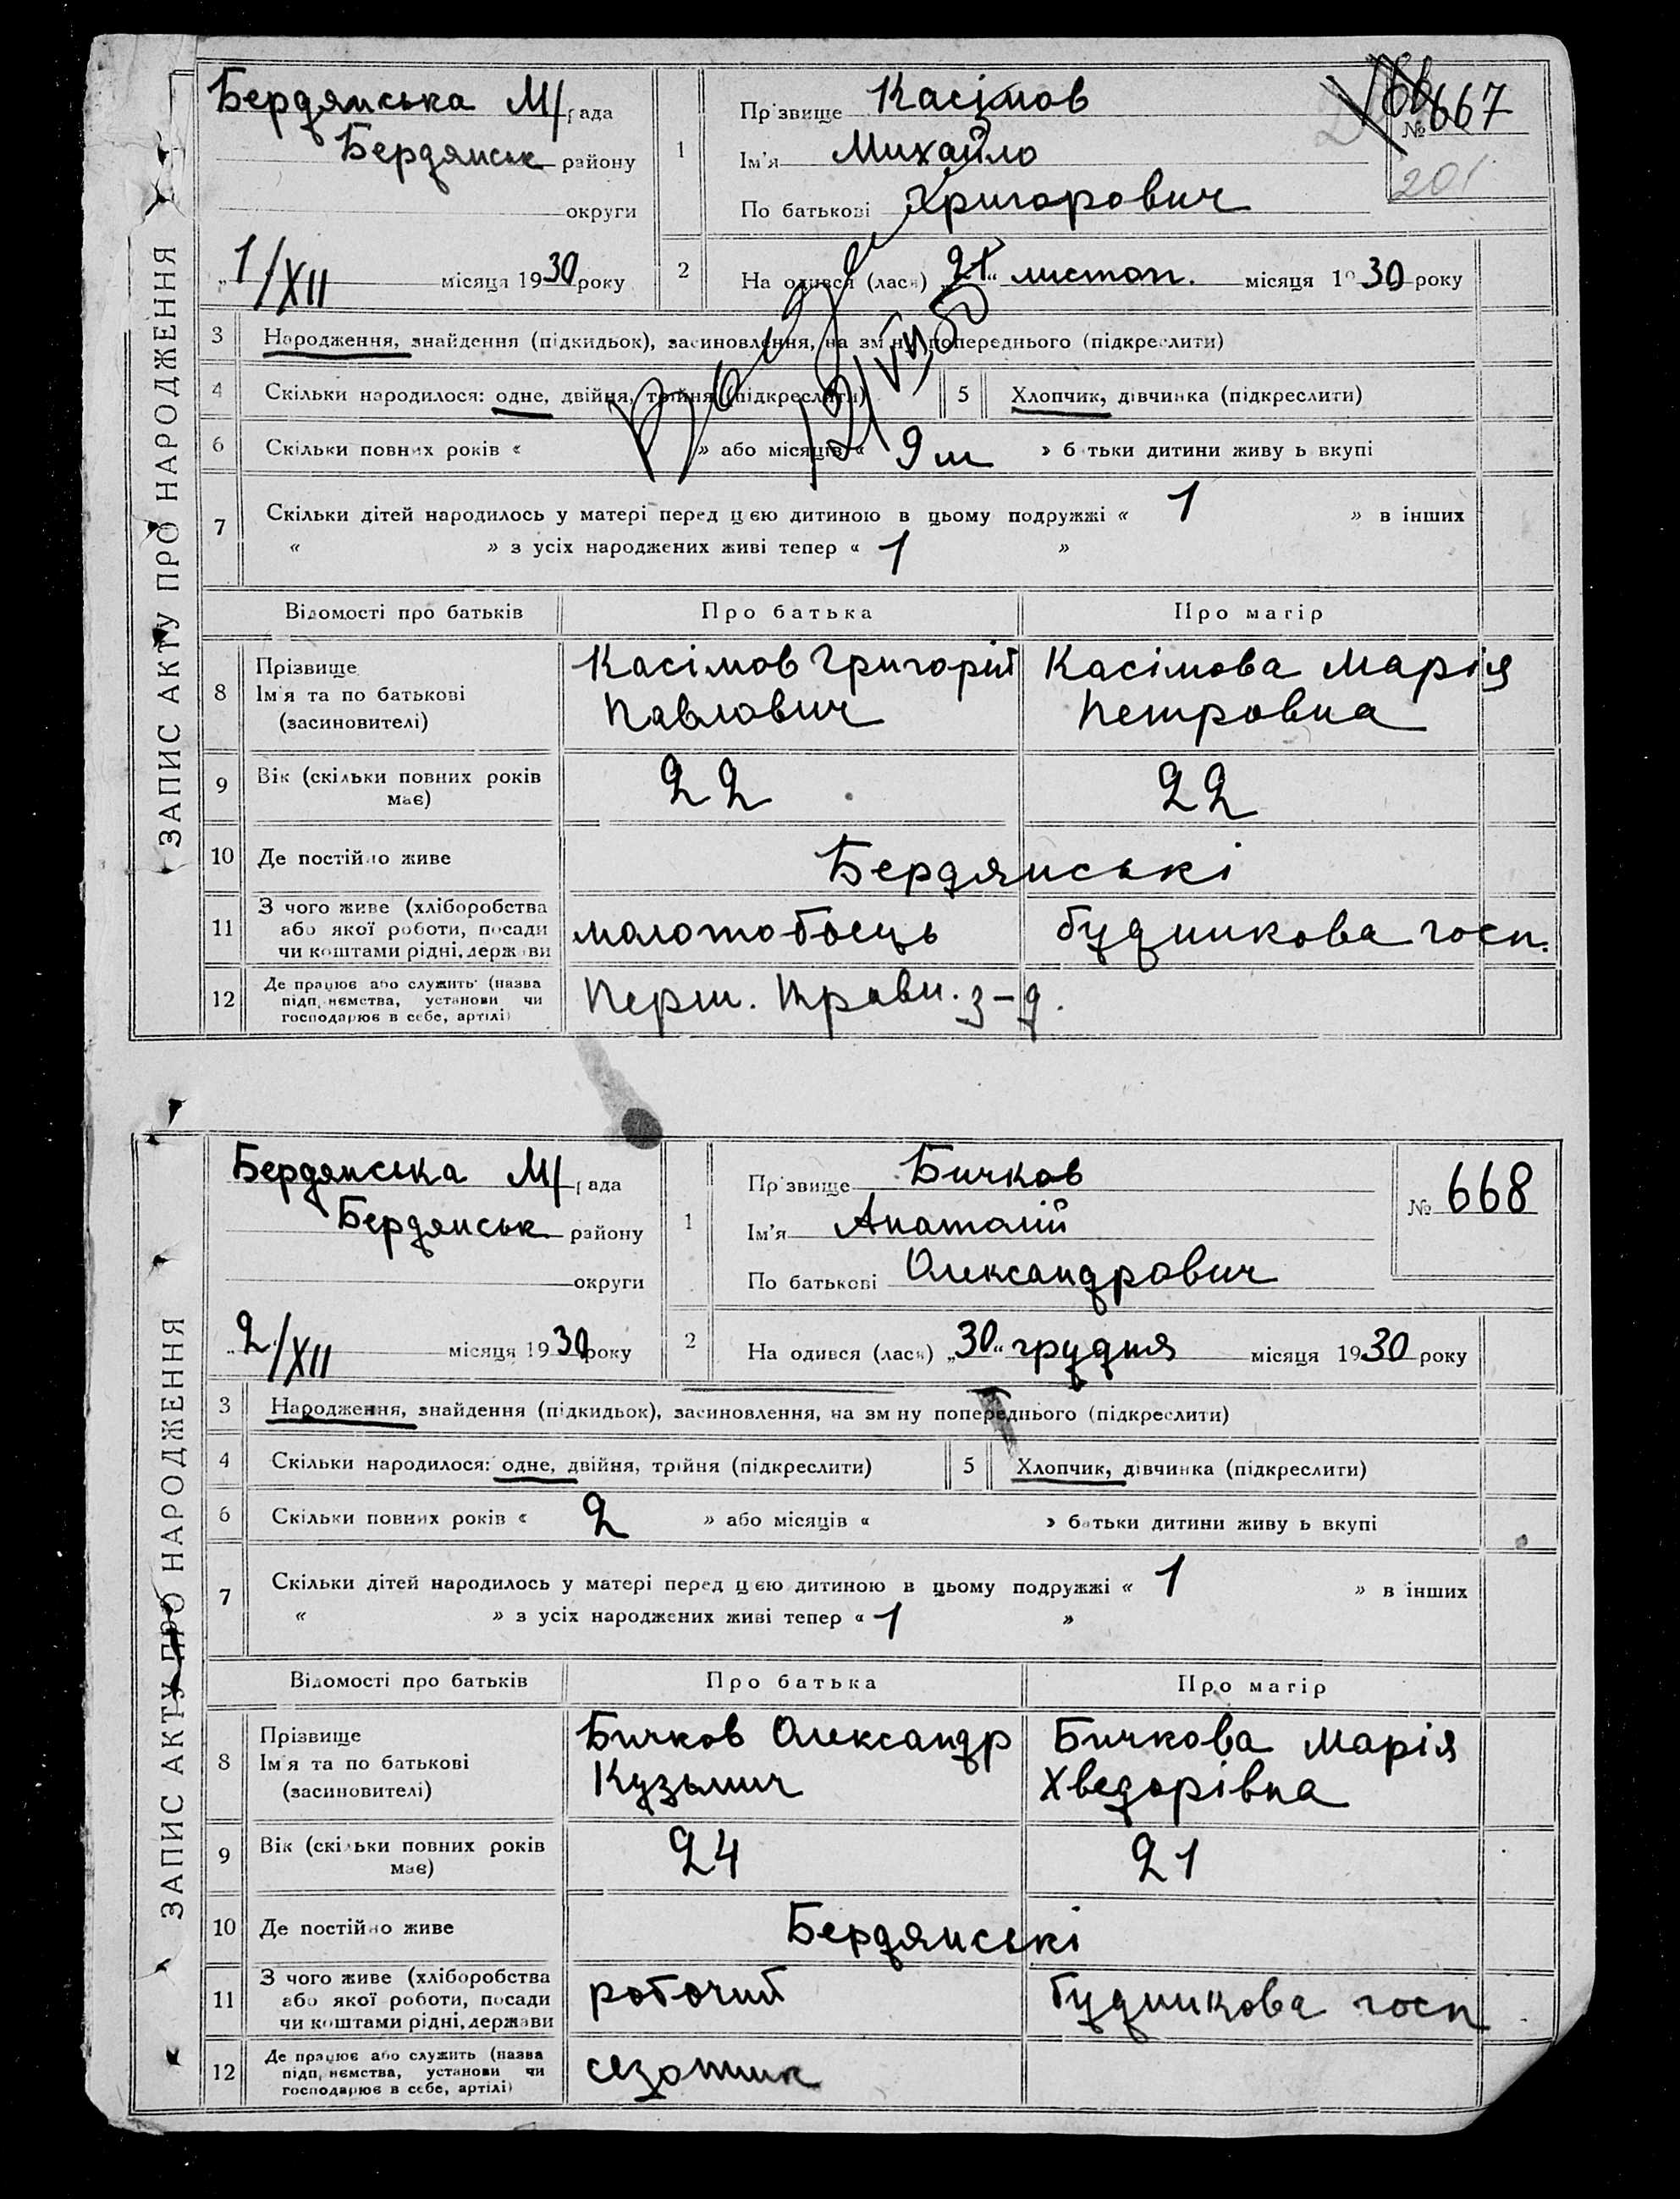 ЗАПИС АКТУ ПРО НАРОДЖЕННЯ
Бердянська М/рада
Бердянськ району
округи
„1/XII місяця 1930 року
1
Прізвище Касімов
Ім'я Михайло
По батькові Григорович
№ 667
201
2
На одився (лася) „21“ листоп. місяця 1930 року
3 Народження, знайдення (підкидьок), засиновлення, на зм ну попереднього (підкреслити)
4 Скільки народилося: одне, двійня, трійня (підкреслити) 5 Хлопчик, дівчинка (підкреслити)
6 Скільки повних років « » або місяців « 9 м » батьки дитини живу ь вкупі
7 Скільки дітей народилось у матері перед цією дитиною в цьому подружжі « 1 » в інших
« » з усіх народжених живі тепер « 1 »
Відомості про батьків Про батька Про матір
8 Прізвище Ім'я та по батькові (засиновителі)
Касімов Григорій Павлович
Касімова Марія Петровна
9 Вік (скільки повних років має) 22 22
10 Де постійно живе Бердянські
11 З чого живе (хліборобства або якої роботи, посади чи коштами рідні, держави
молотобоець
будинкова госп.
12 Де працює або служить (назва підп, ємства, установи чи господарює в себе, артілі)
Перш. Травн. з-д.
ЗАПИС АКТУ ПРО НАРОДЖЕННЯ
Бердянська М/рада
Бердянськ району
округи
„2/XII місяця 1930 року
1
Прізвище Бичков
Ім'я Анатолій
По батькові Олександрович
№ 668
2
На одився (лася) „30“ грудня місяця 1930 року
3 Народження, знайдення (підкидьок), засиновлення, на зм ну попереднього (підкреслити)
4 Скільки народилося: одне, двійня, трійня (підкреслити) 5 Хлопчик, дівчинка (підкреслити)
6 Скільки повних років « 2 » або місяців « » батьки дитини живу ь вкупі
7 Скільки дітей народилось у матері перед цією дитиною в цьому подружжі « 1 » в інших
« » з усіх народжених живі тепер « 1 »
Відомості про батьків Про батька Про матір
8 Прізвище Ім'я та по батькові (засиновителі)
Бичков Олександр Кузьмич
Бичкова Марія Хведорівна
9 Вік (скільки повних років має) 24 21
10 Де постійно живе Бердянські
11 З чого живе (хліборобства або якої роботи, посади чи коштами рідні, держави
робочий
будинкова госп
12 Де працює або служить (назва підп, ємства, установи чи господарює в себе, артілі)
сезонник